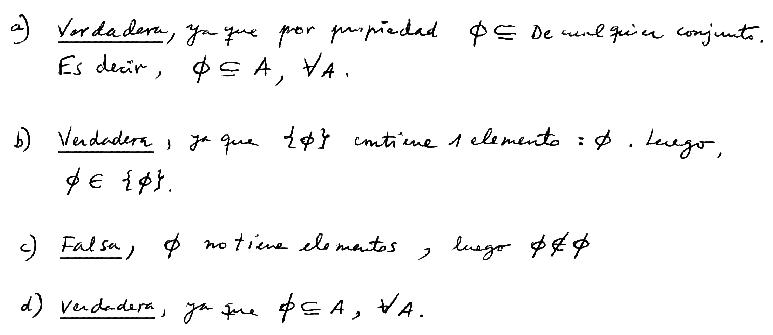 a) Verdadera, ya que por propiedad ϕ ⊆ De cualquier conjunto.
Es decir, ϕ ⊆ A, ∀A.
b) Verdadera, ya que {ϕ} contiene 1 elemento : ϕ. Luego,
ϕ ∈ {ϕ}.
c) Falsa, ϕ no tiene elementos, luego ϕ ∉ ϕ
d) Verdadera, ya que ϕ ⊆ A, ∀A.